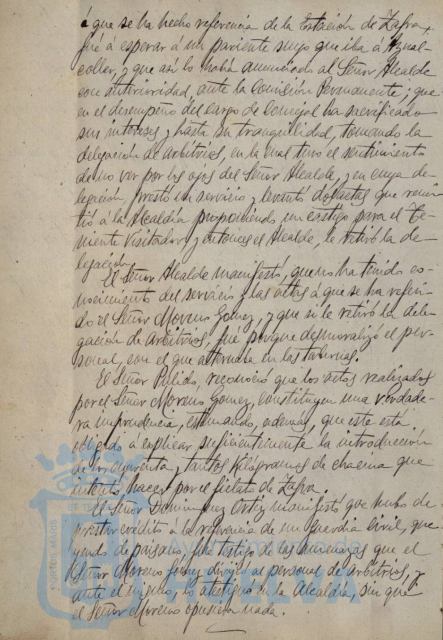 á que se ha hecho referencia de la Estación de Zafra,
fué á esperar á un pariente suyo que iba á Aznal-
collar, y que así lo había anunciado al Señor Alcalde
con anterioridad, ante la Comisión Permanente; que
en el desempeño del cargo de Concejal ha sacrificado
sus intereses y hasta su tranquilidad, tomando la
delegación de arbitrios, en la cual tuvo el sentimiento
de no ver por los ojos del Señor Alcalde, y en cuya de-
legación, prestó un servicio y levantó actas que remi-
tió á la Alcaldía proponiendo un castigo para el Te-
niente Visitador y entonces el Alcalde, le retiró la de-
legación.
El Señor Alcalde manifestó, que no ha tenido co-
nocimiento del servicio y las actas á que se ha referi-
do el Señor Moreno Gómez, y que si le retiró la dele-
gación de Arbitrios, fué porque desmoralizó el per-
sonal, con el que alternaba en las tabernas.
El Señor Pulido, reconoció que los actos realizados
por el Señor Moreno Gómez, constituyen una verdade-
ra imprudencia, estimando, además, que este está
obligado á explicar suficientemente la introducción
de los cuarenta y tantos kilógramos de chacina que
intentó hacer por el fielato de Zafra.
El Señor Domínguez Ortiz manifestó que hubo de
prestar crédito á la referencia de un Guardia Civil, que
yendo de paisano, fué testigo de las amenazas que el
Señor Moreno Gómez dirigió al personal de arbitrios, y
ante el mismo, lo atestiguó en la Alcaldía, sin que
el Señor Moreno opusiera nada.